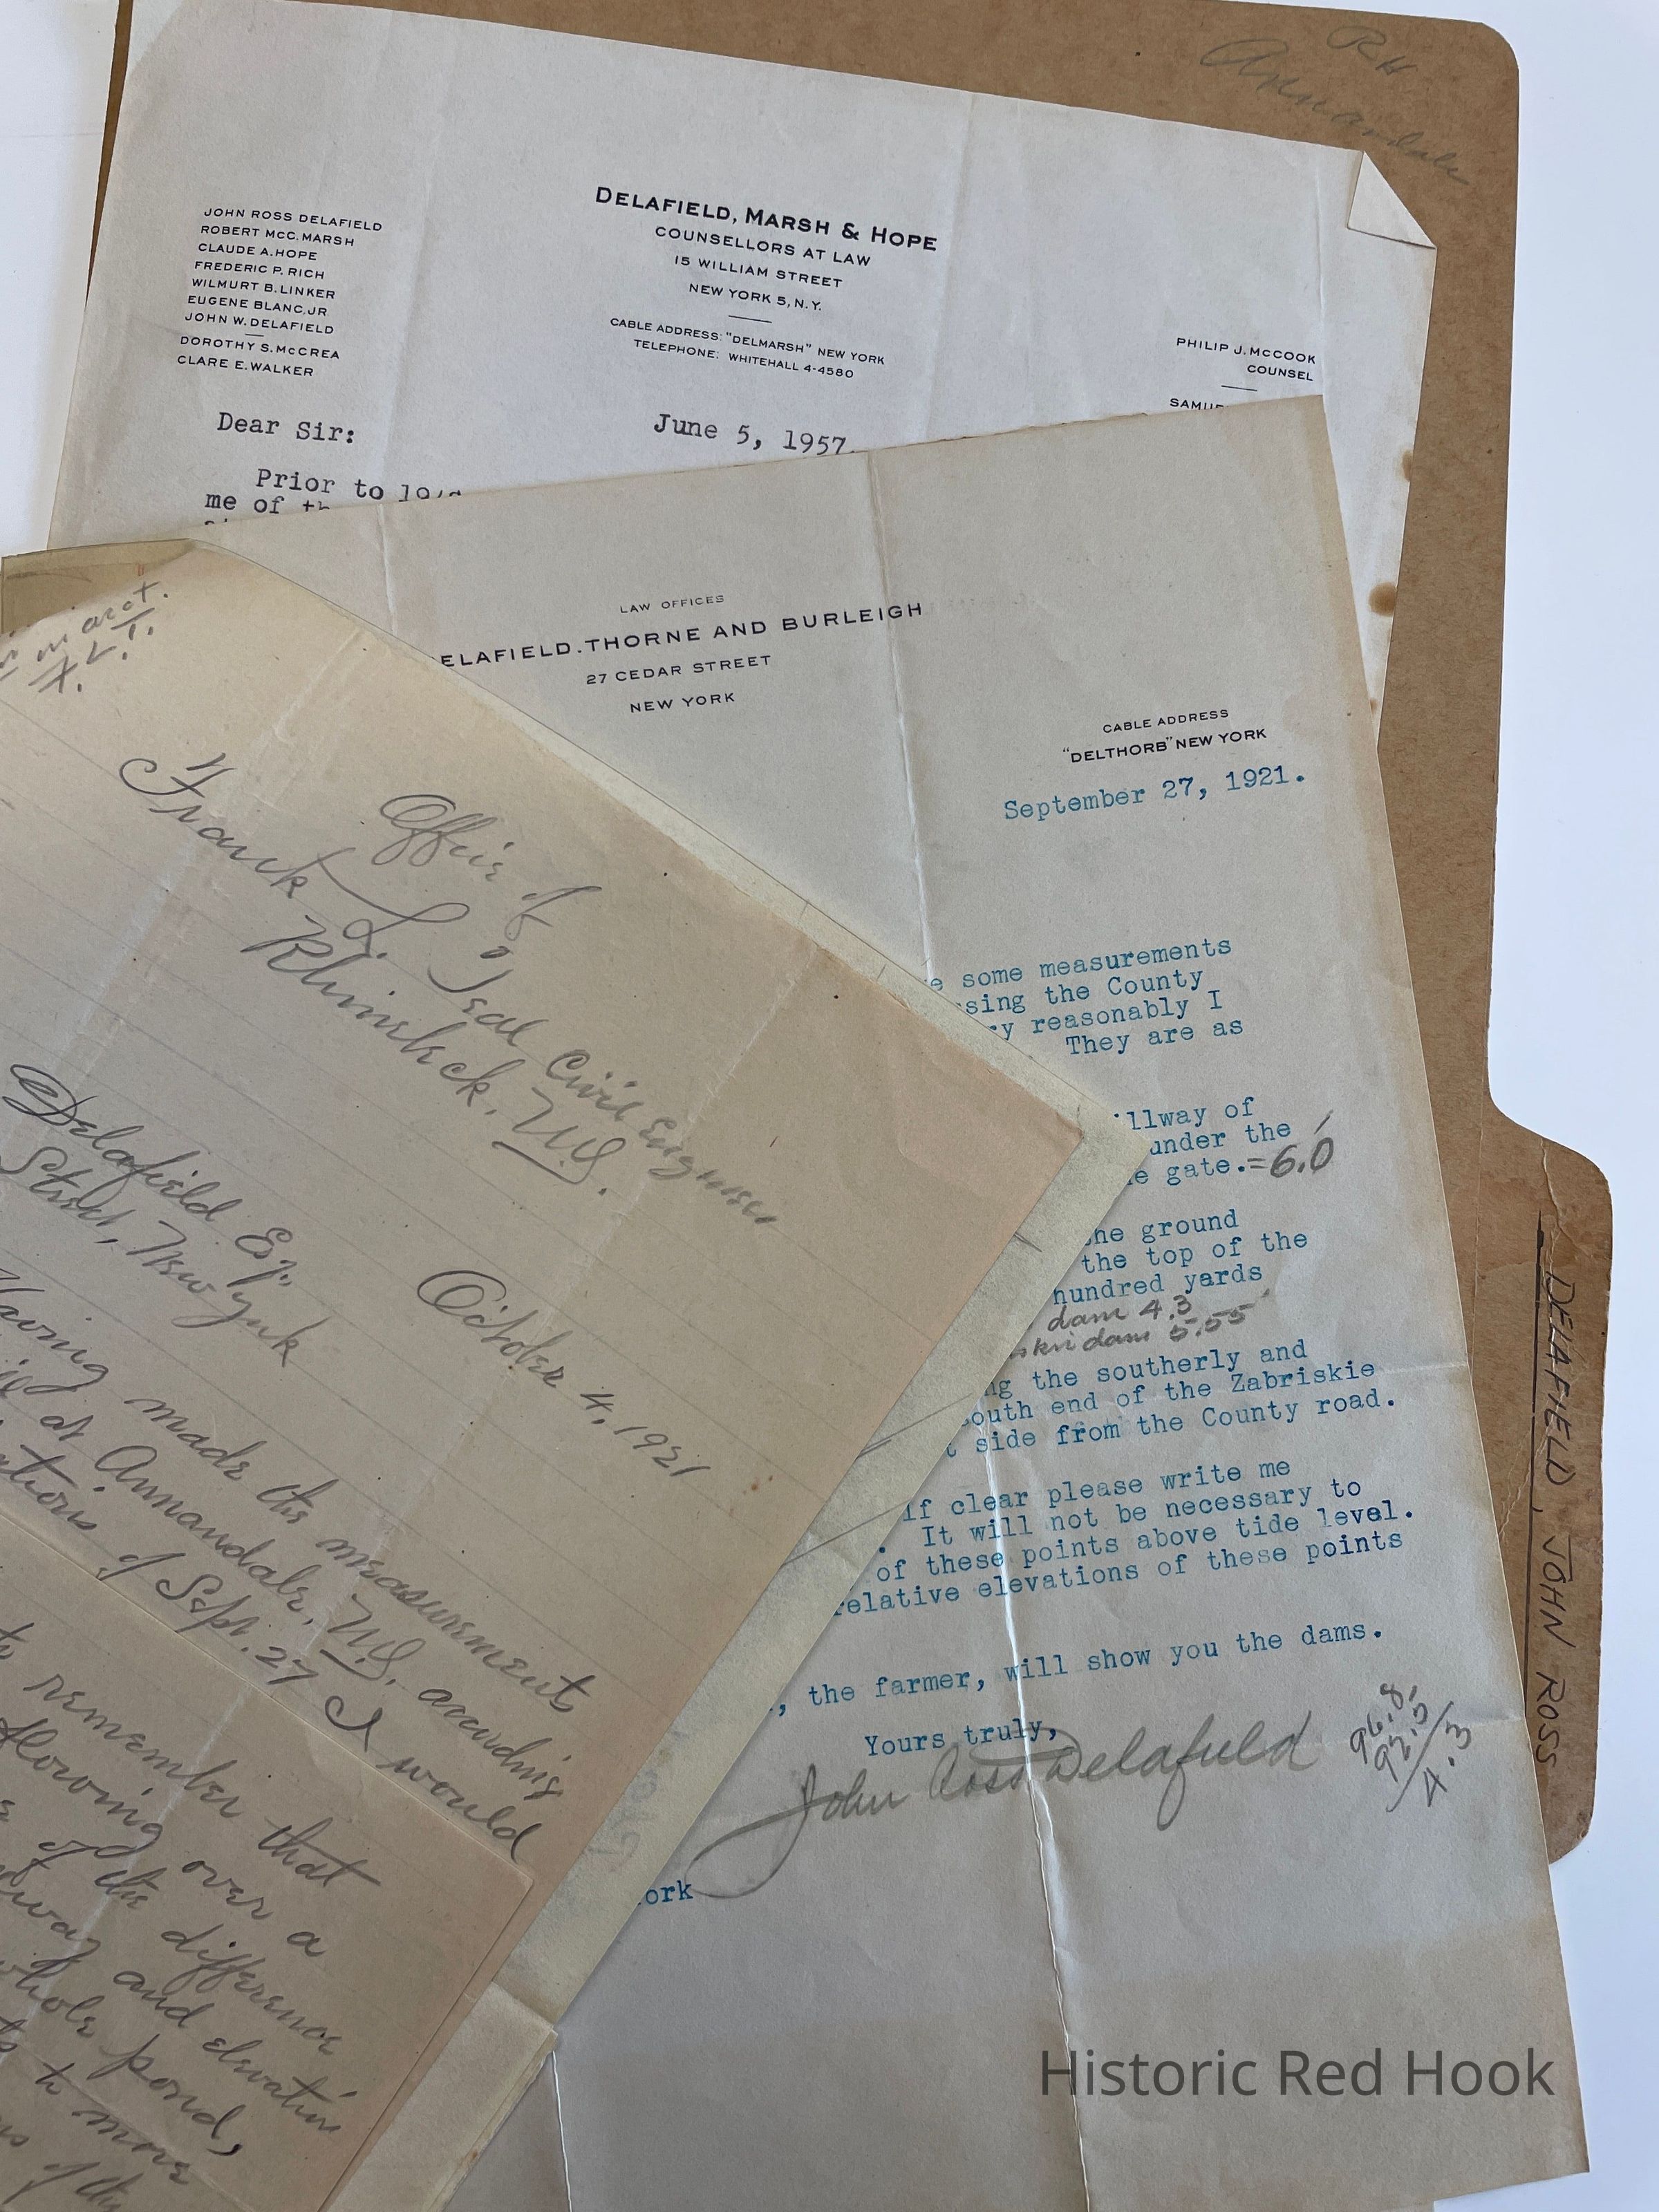 RH
Annandale
DELAFIELD, JOHN ROSS
JOHN ROSS DELAFIELD
ROBERT MCC. MARSH
CLAUDE A. HOPE
FREDERIC P. RICH
WILMURT B. LINKER
EUGENE BLANC, JR
JOHN W. DELAFIELD
DOROTHY S. MCCREA
CLARE E. WALKER
DELAFIELD, MARSH & HOPE
COUNSELLORS AT LAW
15 WILLIAM STREET
NEW YORK 5, N.Y.
CABLE ADDRESS: "DELMARSH" NEW YORK
TELEPHONE: WHITEHALL 4-4580
PHILIP J. MCCOOK
COUNSEL
Dear Sir:
June 5, 1957.
Prior to
me of
LAW OFFICES
ELAFIELD. THORNE AND BURLEIGH
27 CEDAR STREET
NEW YORK
CABLE ADDRESS
"DELTHORB" NEW YORK
September 27, 1921.
some measurements
sing the County
ry reasonably I
They are as
illway of
under the
gate. = 6.0
he ground
the top of the
hundred yards
dam 4.3
dam 5.55
ng the southerly and
outh end of the Zabriskie
t side from the County road.
If clear please write me
. It will not be necessary to
of these points above tide level.
relative elevations of these points
, the farmer, will show you the dams.
Yours truly,
John Ross Delafield
96.8
92.5
4.3
ork
Office of
Frank L. Teal Civil Engineer
Rhinebeck, N.Y.
October 4, 1921
Delafield Esq.
Street, New York
Having made the measurement
at Annandale, N.Y. according
of Sept. 27 I would
remember that
flowing over a
of the difference
way and elevation
whole pond,
to more
of the
Historic Red Hook